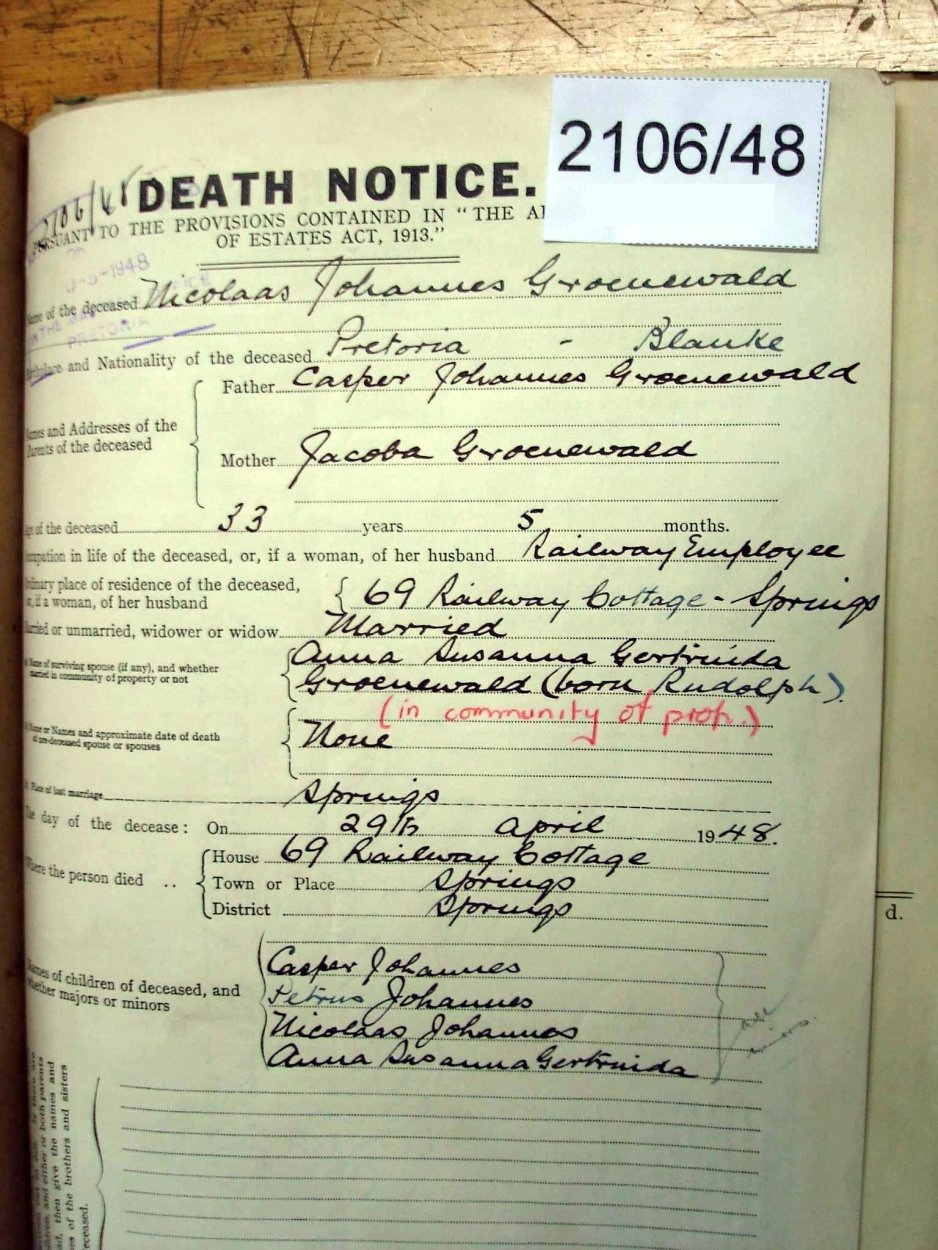 2106/48
2106/48
DEATH NOTICE.
PURSUANT TO THE PROVISIONS CONTAINED IN “THE
OF ESTATES ACT, 1913.”
-1948
PRETORIA
Name of the deceased Nicolaas Johannes Groenewald
Birthplace and Nationality of the deceased Pretoria - Blanke
Names and Addresses of the Parents of the deceased
Father Casper Johannes Groenewald
Mother Jacoba Groenewald
Age of the deceased 33 years 5 months.
Occupation in life of the deceased, or, if a woman, of her husband Railway Employee
Ordinary place of residence of the deceased,
or, if a woman, of her husband { 69 Railway Cottage - Springs
Married or unmarried, widower or widow Married
Name of surviving spouse (if any), and whether
married in community of property or not
Anna Susanna Gertruida
Groenewald (born Rudolph).
(in community of prop.)
Name or Names and approximate date of death
of pre-deceased spouse or spouses
None
Place of last marriage Springs
The day of the decease: On 29th April 1948.
Where the person died ..
House 69 Railway Cottage
Town or Place Springs
District Springs
Names of children of deceased, and
whether majors or minors
Casper Johannes
Petrus Johannes
Nicolaas Johannes
Anna Susanna Gertruida
all
minors.
and either or both parents
then give the names and
of the brothers and sisters
deceased.
d.